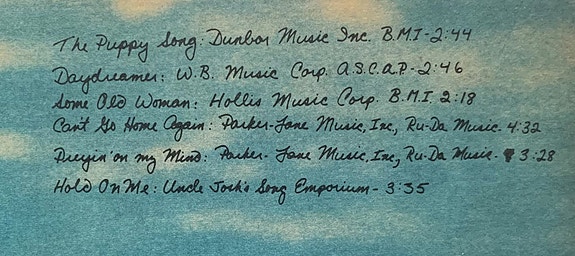 The Puppy Song: Dunbar Music Inc. B.M.I-2:44
Daydreamer: W.B. Music Corp. A.S.C.A.P.-2:46
Some Old Woman: Hollis Music Corp. B.M.I. 2:18
Can't Go Home Again: Parker-Jane Music, Inc., Ru-Da Music. 4:32
Preyin' on my Mind: Parker-Jane Music, Inc, Ru-Da Music- 3:28
Hold On Me: Uncle Josh's Song Emporium- 3:35